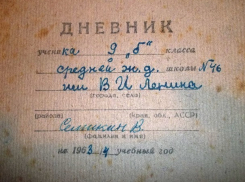 ДНЕВНИК
ученика 9 „б" класса
средней ж.д. школы № 46
им В. И. Ленина
(города, села)
(район) (края, обл., АССР)
Семикин В.
(Фамилия и имя)
на 1963/4 учебный год